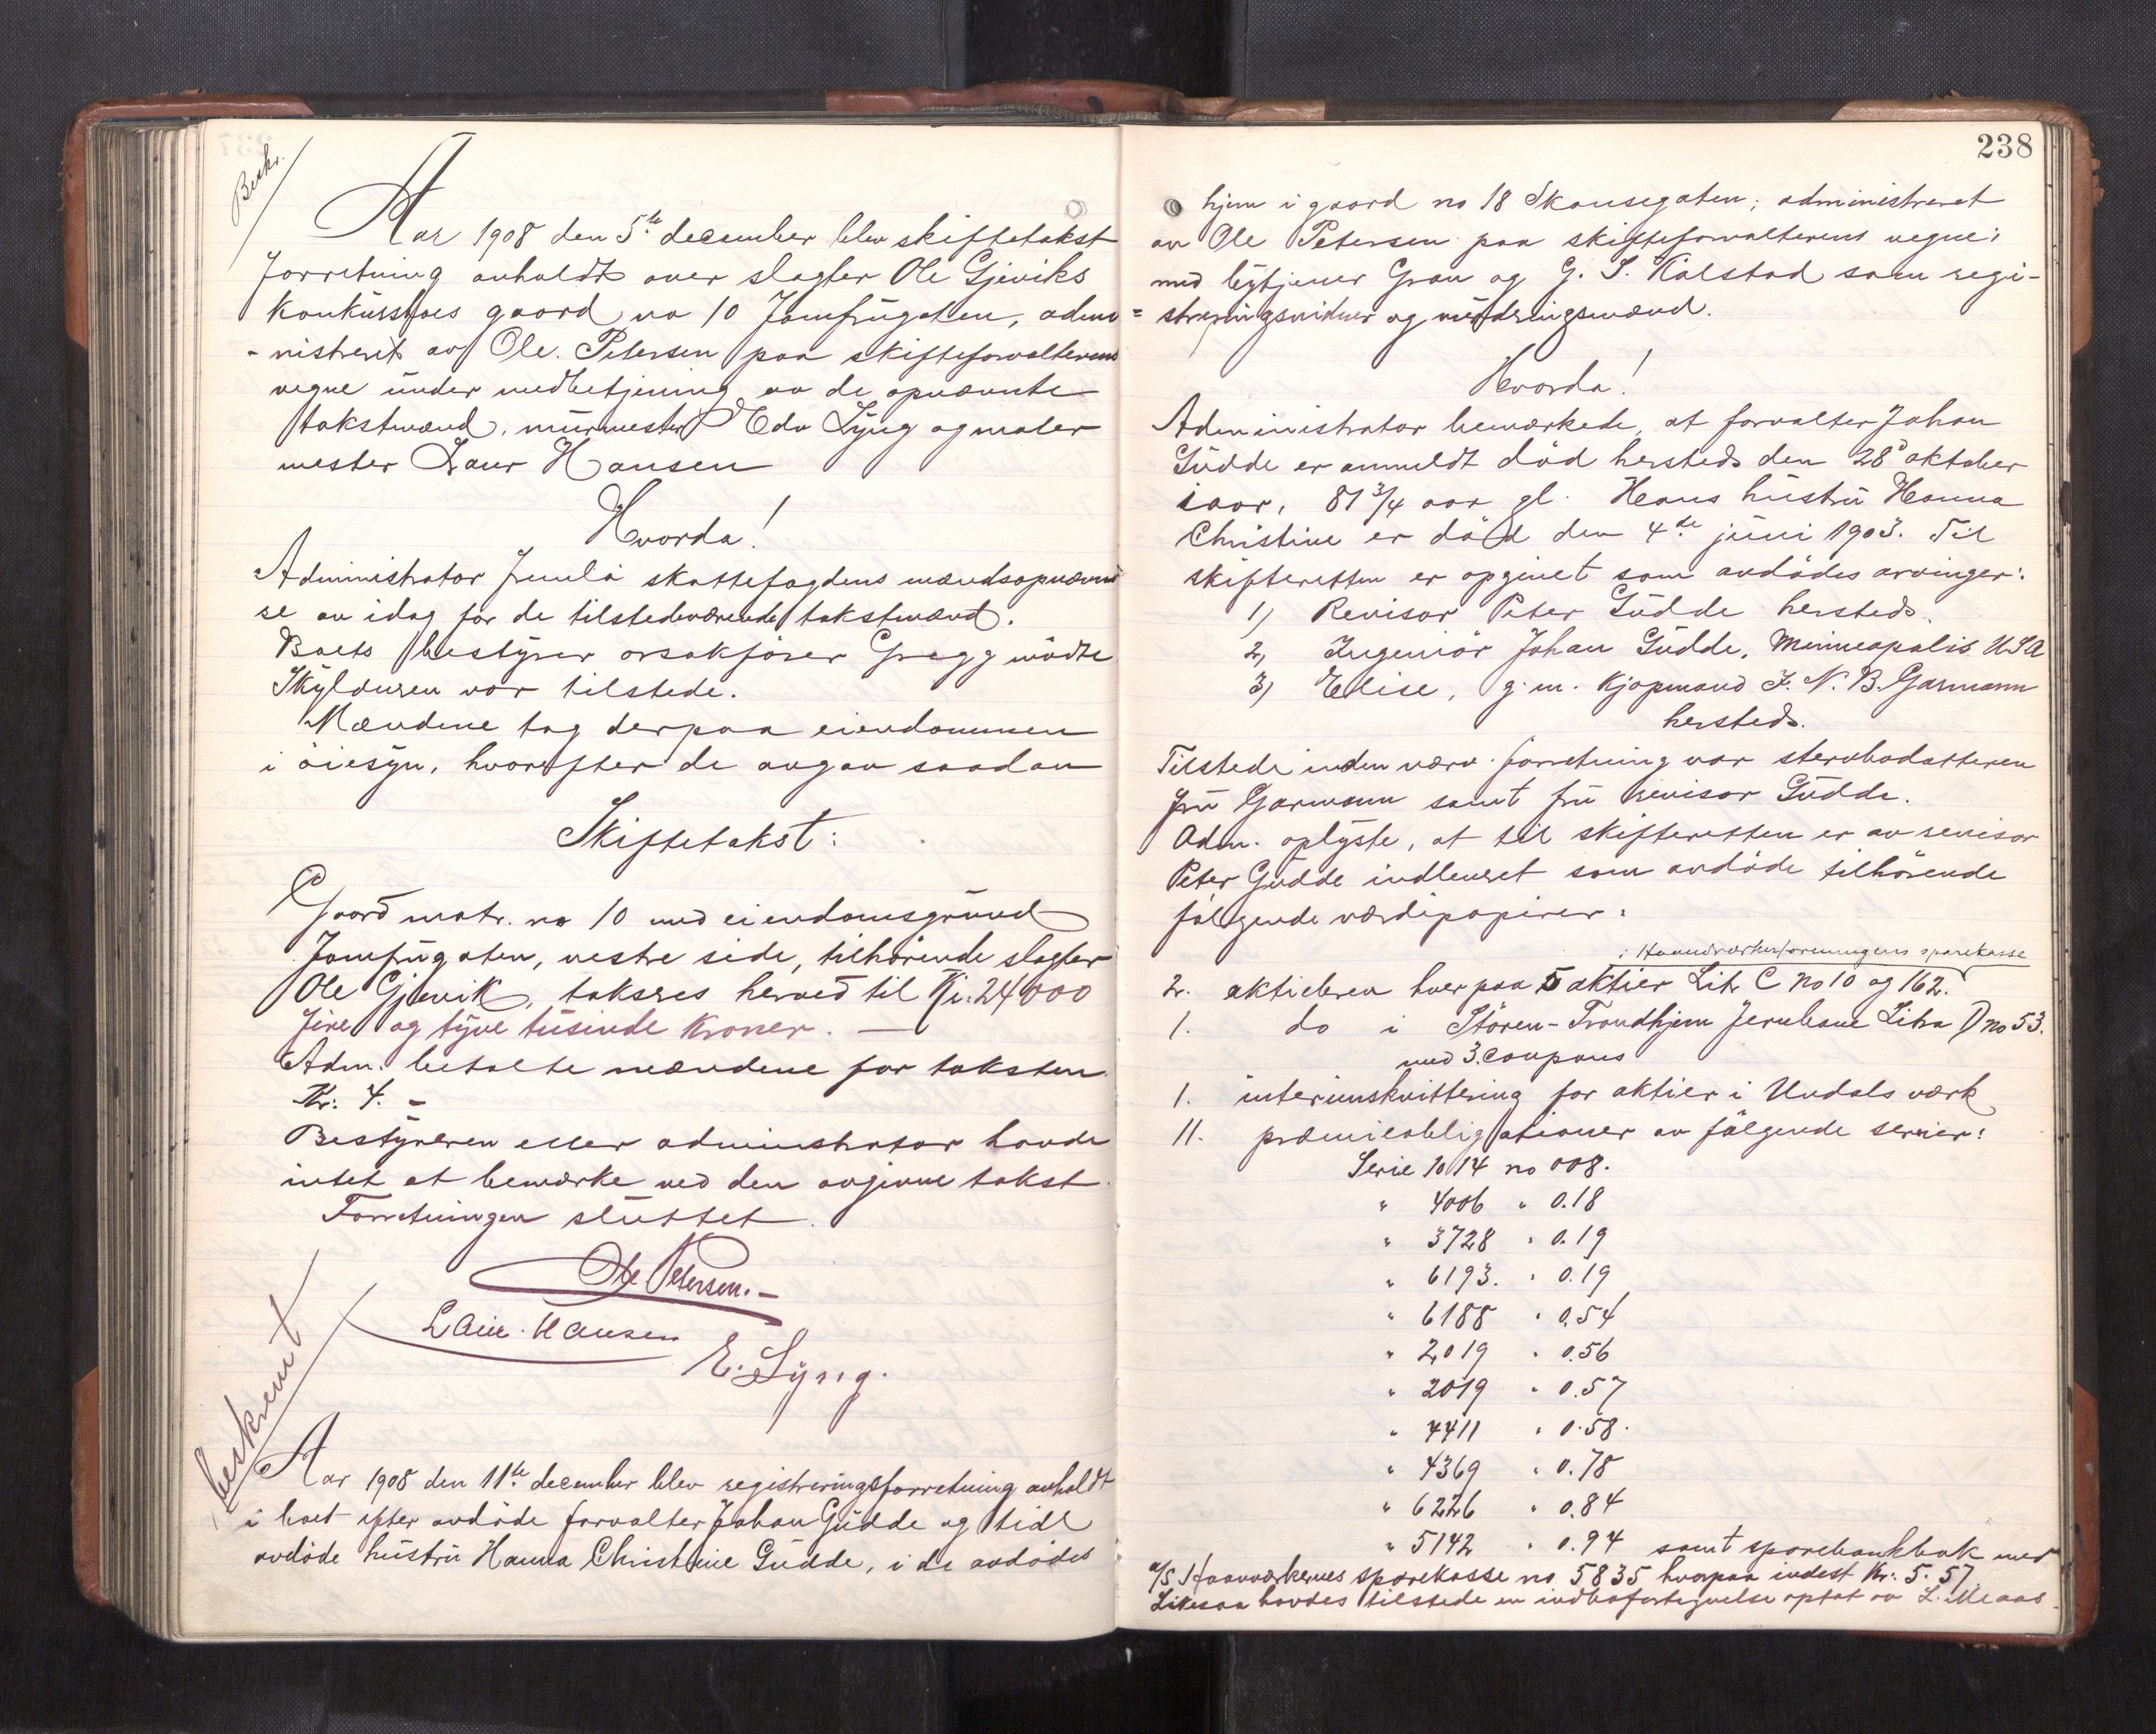 Beskr.
Aar 1908 den 5te december blev skiftetakst
forretning avholdt over slagter Ole Gjeviks
konkursboes gaard no 10 Jomfrugaten, admi
-nistreret av Ole Petersen paa skifteforvalterens
vegne under medbetjening av de opnævnte
takstmænd, murmester Edv Lyng og maler
mester Laur Hansen
Hvorda!
Administrator fremla skattefogdens mændsopnævnel
se av idag for de tilstedeværende takstmænd.
Boets bestyrer orsakfører Gregg mødte
Skyldneren var tilstede.
Mændene tog derpaa eiendommen
i øiesyn, hvorefter de avgav saadan
Skiftetakst:
Gaard matr. no 10 med eiendomsgrund
Jomfrugaten, vestre side, tilhørende slagter
Ole Gjevik, takseres herved til Kr: 24000
fire og tyve tusinde kroner. —
Adm. betalte mændene for taksten
Kr: 4. -
Bestyreren eller administrator havde
intet at bemærke ved den avgivne takst.
Forretningen sluttet.
Ole Petersen.-
Laur. Hansen
E. Lyng.
beskrevet
Aar 1908 den 11te december blev registreringsforretning avholdt
i boet efter avdøde forvalter Johan Gudde og tidl
avdøde hustru Hanna Christine Gudde, i de avdødes
238
hjem i gaard no 18 Skansegaten; administreret
av Ole Petersen paa skifteforvalterens vegne;
med bytjener Grau og G. S. Kalstad som regi-
=streringsvidner og vurderingsmænd.
Hvorda!
Administrator bemærkede, at forvalter Johan
Gudde er anmeldt död hersteds den 28d oktober
iaar, 81 3/4 aar gl. Hans hustru Hanna
Christine er död den 4de juni 1903. Til
skifteretten er opgivet som avdödes arvinger:
1) Revisor Peter Gudde hersteds.
2) Ingeniör Johan Gudde, Minneapolis USA
3) Elise, g. m. kjøpmand F. N. B. Garmann
hersteds.
Tilstede under nærv. forretning var stervbodatteren
fru Garmann samt fru revisor Gudde.
Adm. oplyste, at til skifteretten er av revisor
Peter Gudde indleveret som avdöde tilhörende
fölgende værdipapirer:
i Haandværkerforeningens sparekasse
2. aktiebrev hver paa 5 aktier Litr C no 10 og 162.
1. do i Stören-Trondhjem Jernbane Litra D no 53.
med 3. coupons
1. interimskvittering for aktier i Undals værk
11. præmieobligationer av fölgende serier:
Serie 1014 no 008.
" 4006 " 0.18
" 3728 " 0.19
" 6193. " 0.19
" 6188 " 0.54
" 2019 " 0.56
" 2019 " 0.57
" 4411 " 0.58.
" 4369 " 0.78
" 6226 " 0.84
" 5142 " 0.94 samt sparebankbok med
a/s Haanværkernes sparekasse no 5835 hvorpaa indest Kr: 5.57.
Likesaa havdes tilstede en indbofortegnelse optat av L. Meaas